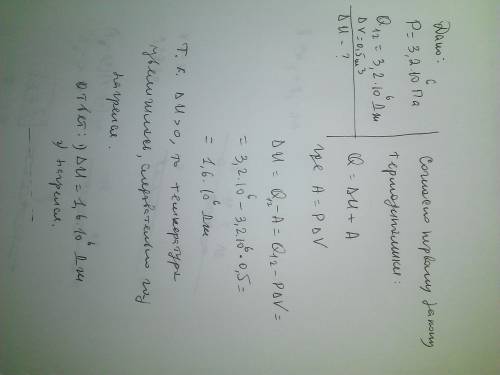 Дано:
P = 3,2·10⁶ Па
Q₁₂ = 3,2·10⁶ Дж
ΔV = 0,5 м³
ΔU - ?
Согласно первому закону
термодинамики:
Q = ΔU + A
где A = PΔV
ΔU = Q₁₂ - A = Q₁₂ - PΔV =
= 3,2·10⁶ - 3,2·10⁶·0,5 =
= 1,6·10⁶ Дж
Т.к. ΔU > 0, то температура
увеличилась, следовательно газ
нагрелся.
Ответ: 1) ΔU = 1,6·10⁶ Дж
2) нагрелся.